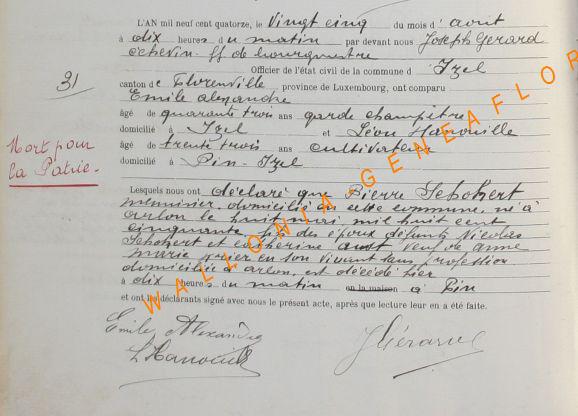 L'AN mil neuf cent quatorze, le vingt cinq du mois d'août
à dix heures du matin par devant nous Joseph Gerard
échevin ff de bourgmestre
Officier de l'état civil de la commune d'Izel
31
canton de Florenville province de Luxembourg, ont comparu
Emile Alexandre
âgé de quarante trois ans garde champêtre
domicilié à Izel et Léon Hanouille
Mort pour
la Patrie.
âgé de trente trois ans cultivateur
domicilié à Pin-Izel
Lesquels nous ont déclaré que Pierre Schokert
menuisier domicilié en cette commune, né à
arlon le huit mai mil huit cent
cinquante, fils des époux défunts Nicolas
Schokert et catherine veuf de anne
marie en son vivant sans profession
domiciliée à arlon, est décédé hier
à dix heures du matin en la maison à Pin
et ont les déclarants signé avec nous le présent acte, après que lecture leur en a été faite.
Emile Alexandre
L Hanouille
J Gérard
WALLONIA-GENEAFLOR